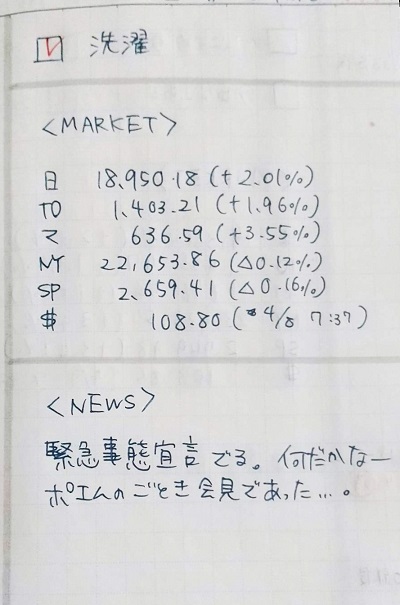 洗濯
<MARKET>
日 18,950.18 (+2.01%)
TO 1,403.21 (+1.96%)
マ 636.59 (+3.55%)
NY 22,653.86 (△0.12%)
SP 2,659.41 (△0.16%)
$ 108.80 (4/8 7:37)
<NEWS>
緊急事態宣言でる。何だかなー
ポエムのごとき会見であった…。